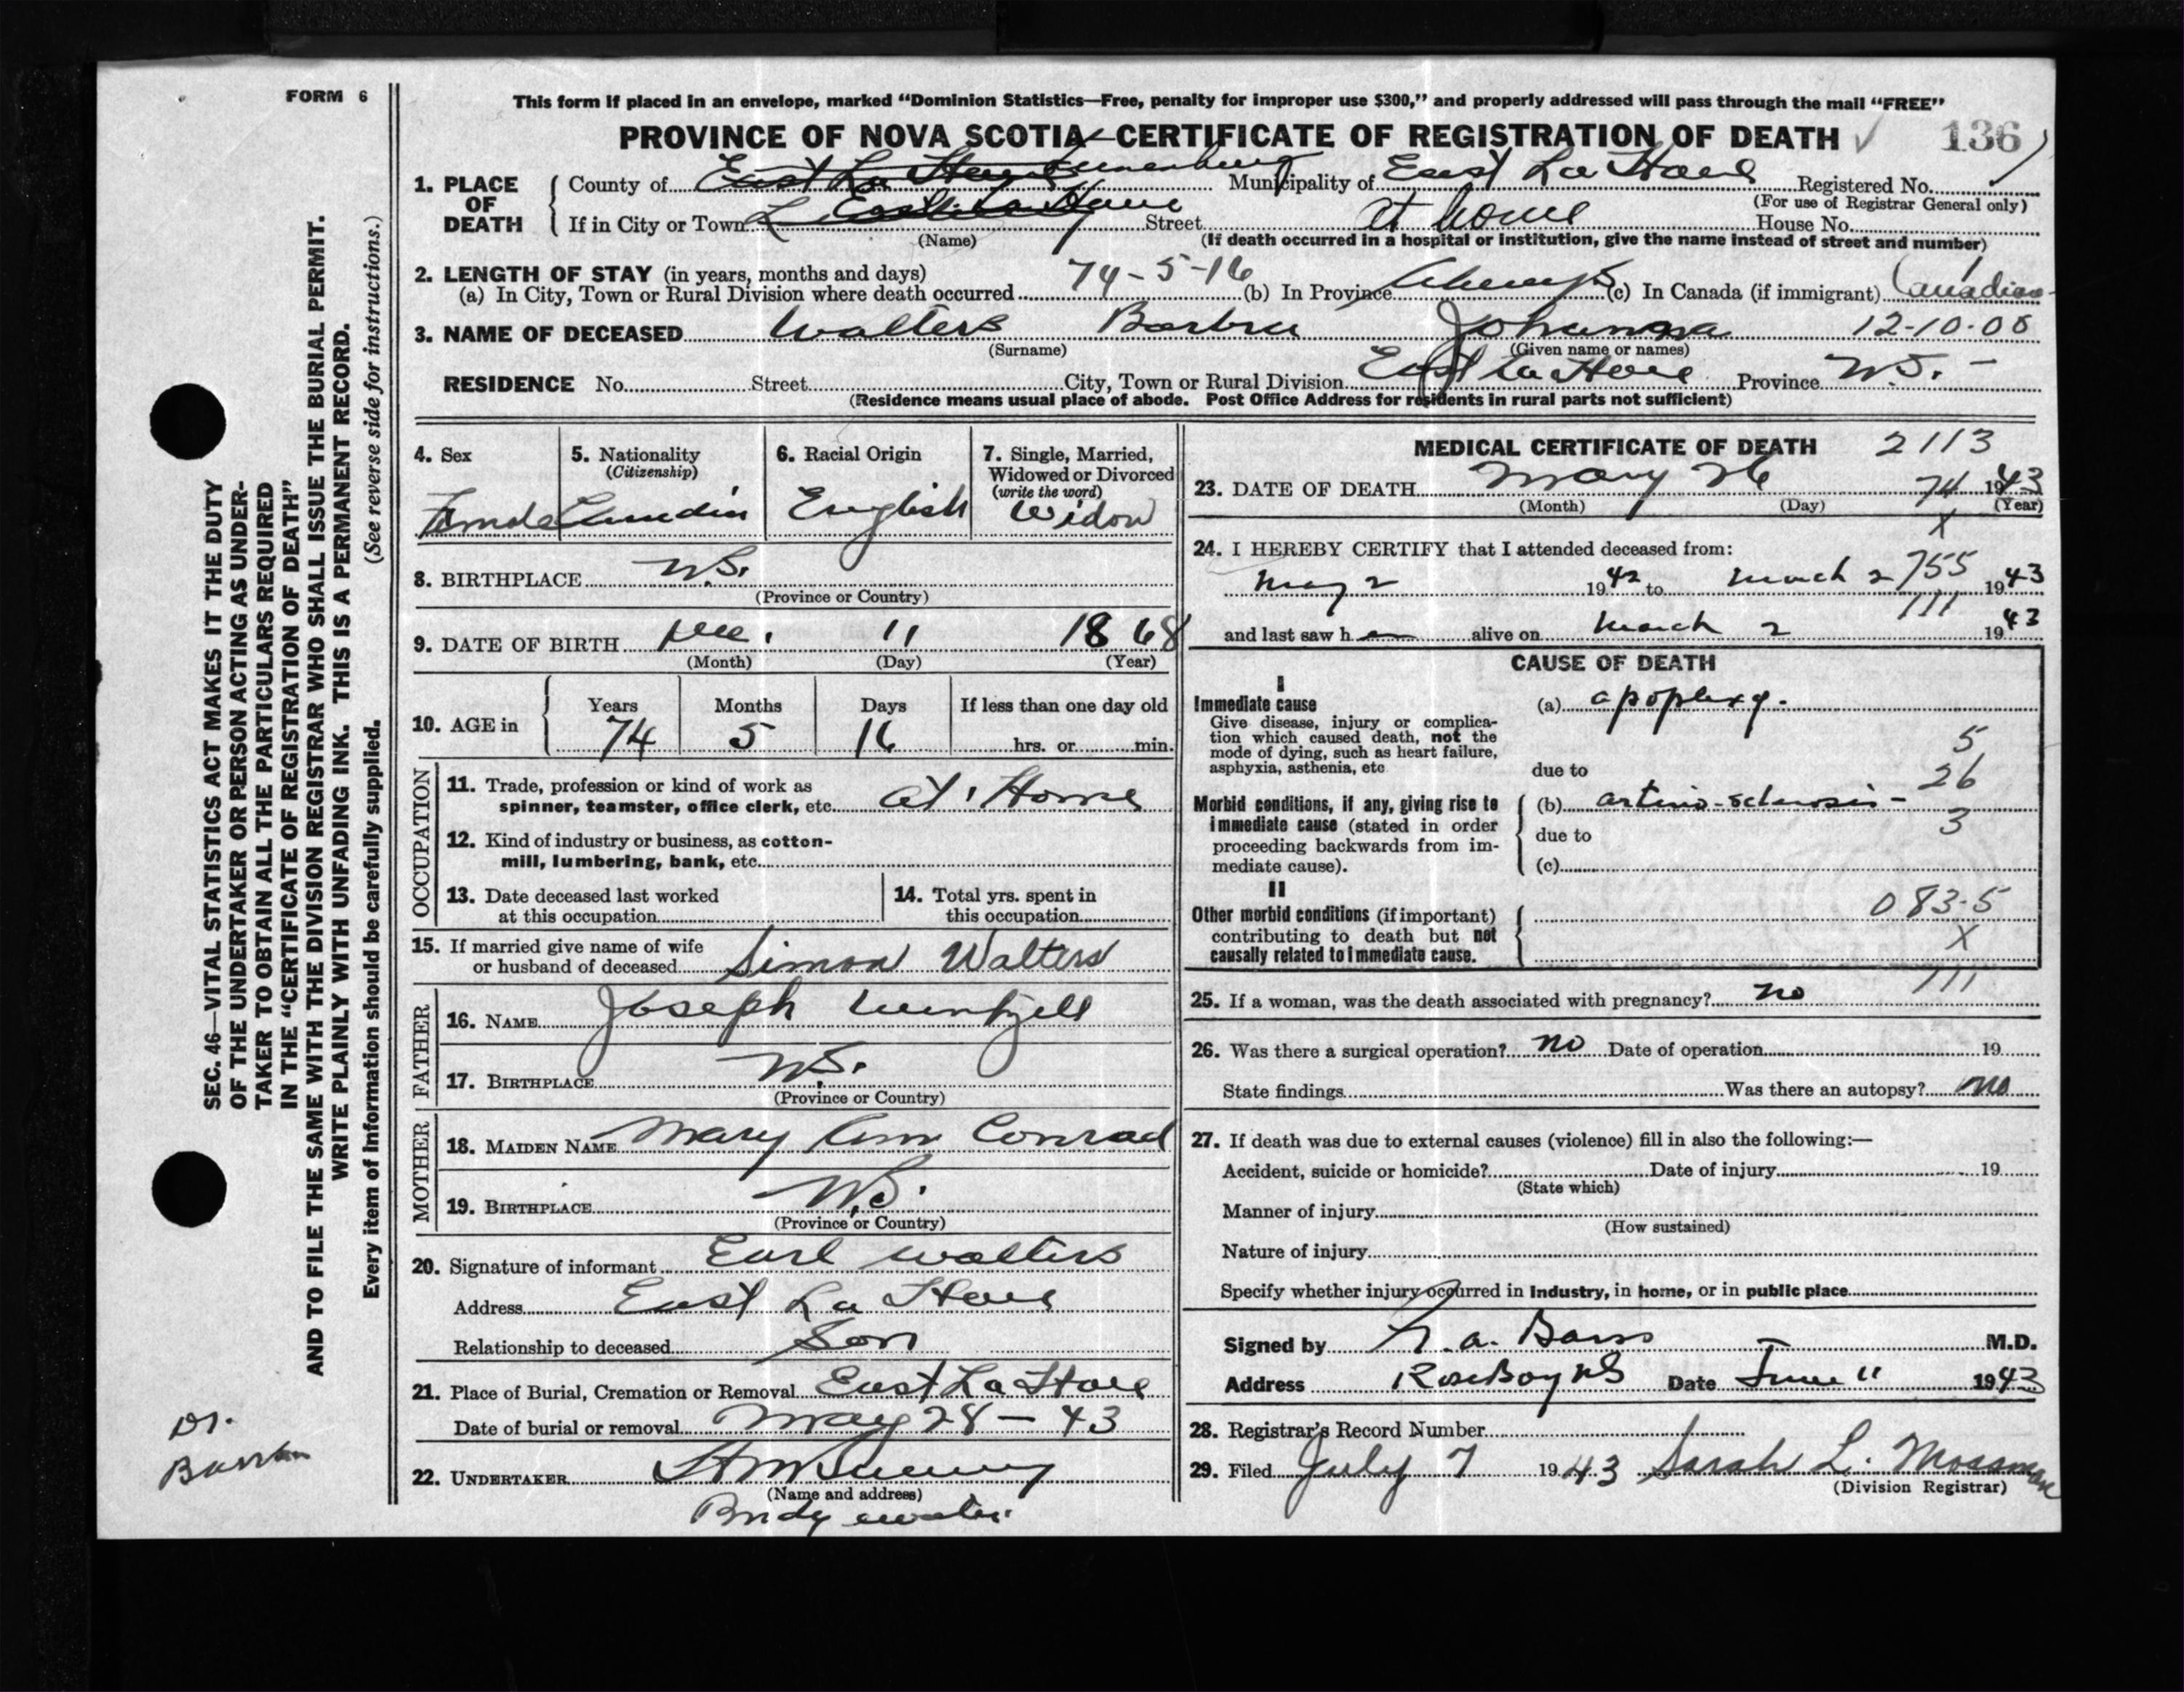 FORM 6
This form if placed in an envelope, marked “Dominion Statistics—Free, penalty for improper use $300,” and properly addressed will pass through the mail “FREE”
PROVINCE OF NOVA SCOTIA—CERTIFICATE OF REGISTRATION OF DEATH 136
1. PLACE OF DEATH
County of East La Have Lunenburg Municipality of East La Have Registered No.
(For use of Registrar General only)
If in City or Town East La Have Street at home House No.
(Name) (If death occurred in a hospital or institution, give the name instead of street and number)
2. LENGTH OF STAY (in years, months and days)
(a) In City, Town or Rural Division where death occurred 74-5-16 (b) In Province Always (c) In Canada (if immigrant) Canadian
3. NAME OF DECEASED Walters Barbra Johanna 12-10-08
(Surname) (Given name or names)
RESIDENCE No. Street City, Town or Rural Division East La Have Province N.S. -
(Residence means usual place of abode. Post Office Address for residents in rural parts not sufficient)
4. Sex
Female
5. Nationality
(Citizenship)
6. Racial Origin
English
7. Single, Married,
Widowed or Divorced
(write the word)
Widow
8. BIRTHPLACE N.S.
(Province or Country)
9. DATE OF BIRTH Dec. 11 1868
(Month) (Day) (Year)
10. AGE in
Years Months Days If less than one day old
74 5 16 hrs. or min.
OCCUPATION
11. Trade, profession or kind of work as
spinner, teamster, office clerk, etc. at Home
12. Kind of industry or business, as cotton-
mill, lumbering, bank, etc.
13. Date deceased last worked
at this occupation
14. Total yrs. spent in
this occupation
15. If married give name of wife
or husband of deceased Simon Walters
FATHER
16. NAME Joseph Wentzell
17. BIRTHPLACE N.S.
(Province or Country)
MOTHER
18. MAIDEN NAME Mary Ann Conrad
19. BIRTHPLACE N.S.
(Province or Country)
20. Signature of informant Earl Walters
Address East La Have
Relationship to deceased Son
21. Place of Burial, Cremation or Removal East La Have
Date of burial or removal May 28 - 43
22. UNDERTAKER
(Name and address)
Bridgewater.
MEDICAL CERTIFICATE OF DEATH 2113
23. DATE OF DEATH May 26 74 1943
(Month) (Day) (Year)
X
24. I HEREBY CERTIFY that I attended deceased from:
May 2 1942 to March 2 755 1943
111
and last saw h alive on March 2 1943
CAUSE OF DEATH
I
Immediate cause
Give disease, injury or complica-
tion which caused death, not the
mode of dying, such as heart failure,
asphyxia, asthenia, etc
(a) apoplexy.
5
due to
26
Morbid conditions, if any, giving rise to
immediate cause (stated in order
proceeding backwards from im-
mediate cause).
(b) arterio-sclerosis -
3
due to
(c)
II
Other morbid conditions (if important)
contributing to death but not
causally related to immediate cause.
083-5
X
111
25. If a woman, was the death associated with pregnancy? no
26. Was there a surgical operation? no Date of operation 19
State findings Was there an autopsy? no
27. If death was due to external causes (violence) fill in also the following:—
Accident, suicide or homicide? Date of injury 19
(State which)
Manner of injury
(How sustained)
Nature of injury
Specify whether injury occurred in industry, in home, or in public place
Signed by M.D.
Address Rose Bay NS Date June 11 1943
28. Registrar's Record Number
29. Filed July 7 1943 Sarah L. Mossman
(Division Registrar)
SEC. 46—VITAL STATISTICS ACT MAKES IT THE DUTY
OF THE UNDERTAKER OR PERSON ACTING AS UNDER-
TAKER TO OBTAIN ALL THE PARTICULARS REQUIRED
IN THE “CERTIFICATE OF REGISTRATION OF DEATH”
AND TO FILE THE SAME WITH THE DIVISION REGISTRAR WHO SHALL ISSUE THE BURIAL PERMIT.
WRITE PLAINLY WITH UNFADING INK. THIS IS A PERMANENT RECORD.
Every item of information should be carefully supplied. (See reverse side for instructions.)
Dr.